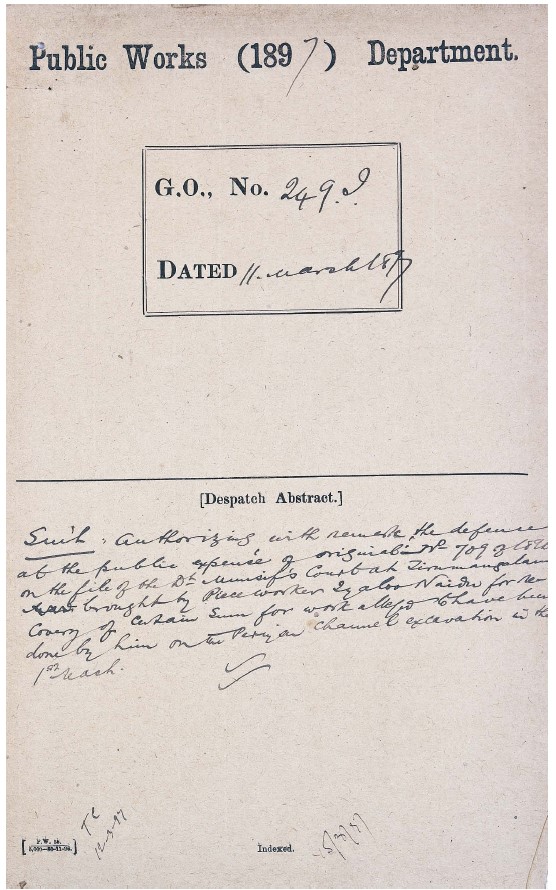 Public Works (1897) Department.
G.O., No. 249.I
DATED 11. March 1897
[Despatch Abstract.]
Suit: Authorizing with remarks, the defense
at the public expense of original No 709 of
on the file of the Dt. Munsif's Court at Tirumangalam
brought by Piece worker Naidu for Re-
covery of certain Sum for work alleged to have been
done by him on the Periyar channel excavation in the
1st Reach.
T C
12-3-97
P.W. 15.
Indexed.
15/3/97